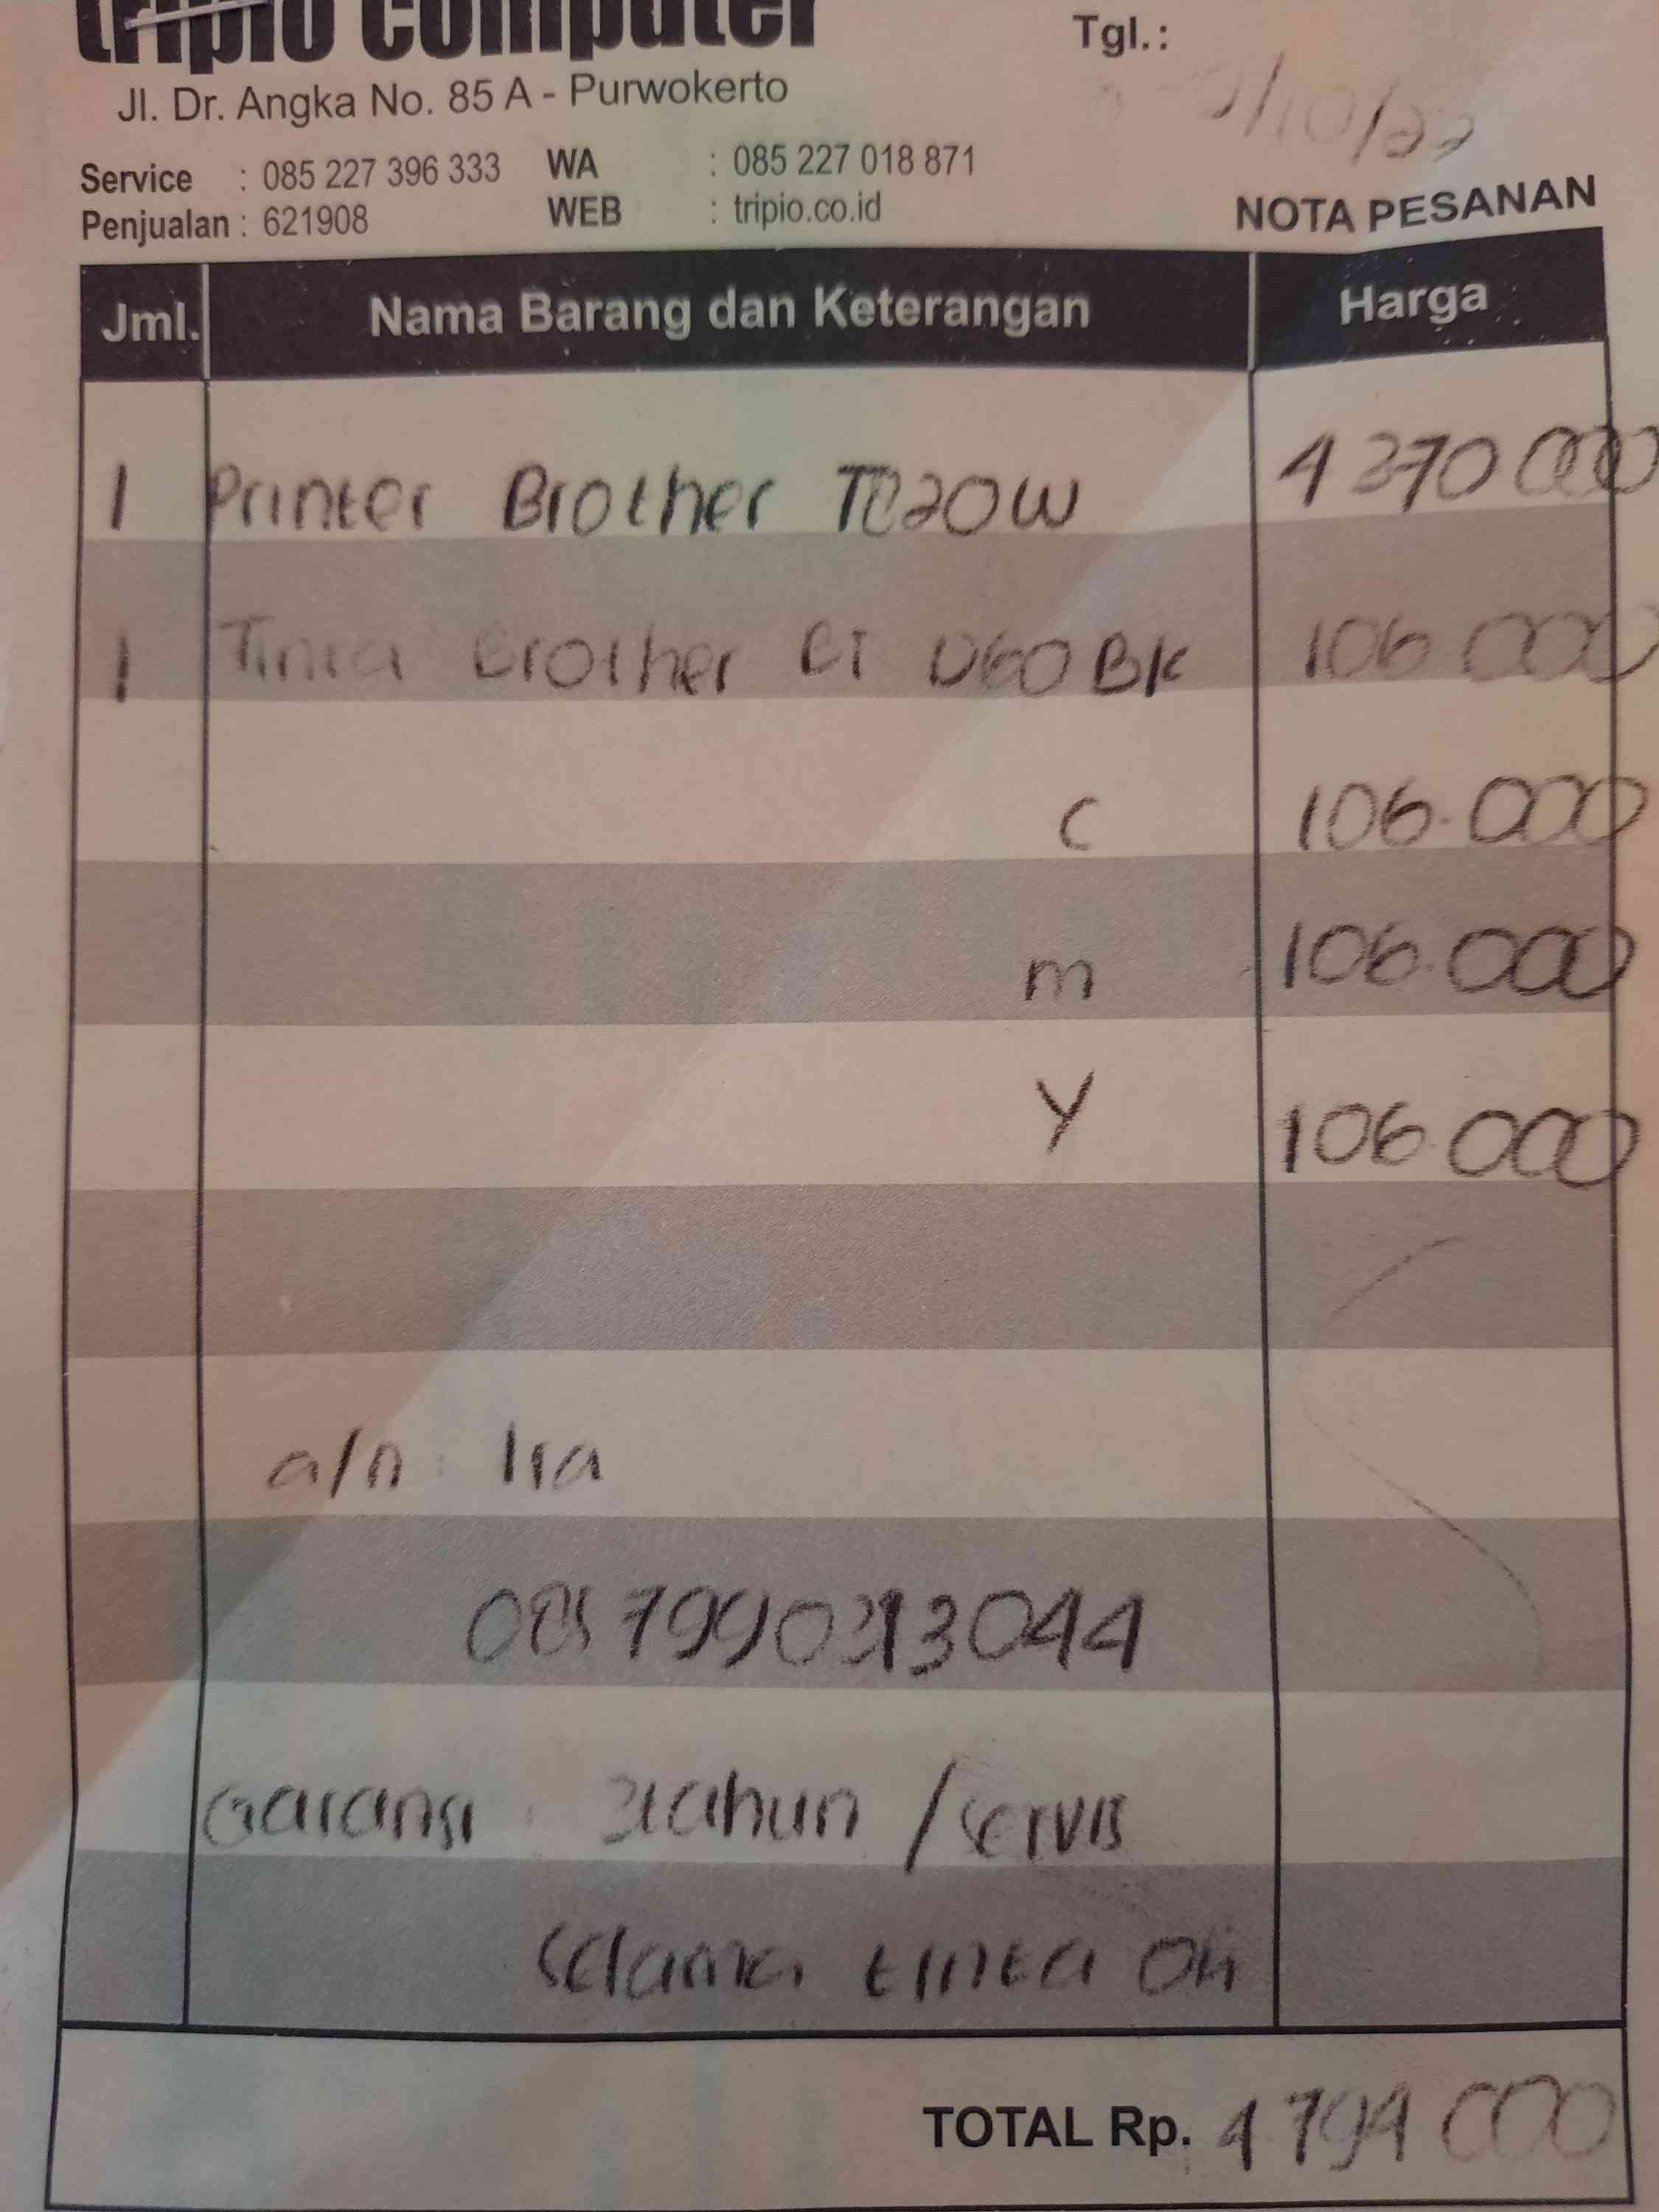 tripio computer
Jl. Dr. Angka No. 85 A - Purwokerto
Service : 085 227 396 333 WA : 085 227 018 871
Penjualan : 621908 WEB : tripio.co.id
Tgl.:
/10/22
NOTA PESANAN
Jml. Nama Barang dan Keterangan Harga
1 Printer Brother 4370 000
1 Tinta Brother BT D60 BK 106 000
C 106.000
m 106.000
Y 106.000
a/n : lia
Garansi : tahun / servis
selama tinta ori
TOTAL Rp. 4794 000